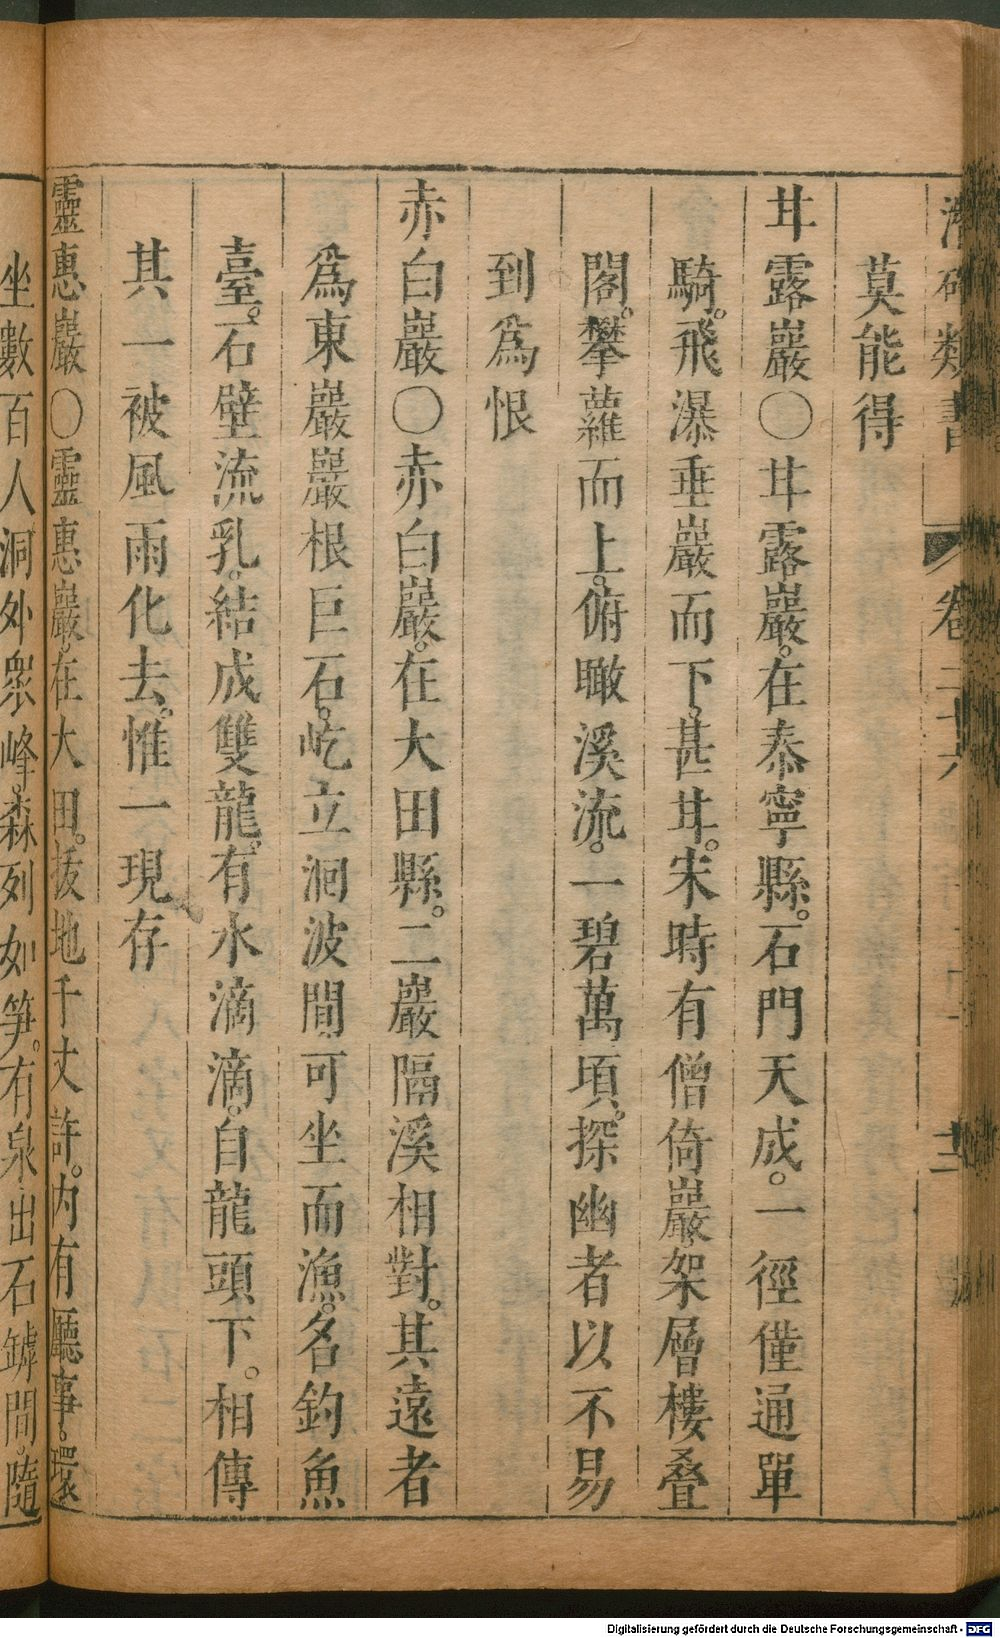 類書 卷二十六
莫能得
甘露巖〇甘露巖。在泰寧縣。石門天成。一徑僅通單
騎。飛瀑垂巖而下。甚甘。宋時有僧倚巖架層樓疊
閣。攀蘿而上。俯瞰溪流。一碧萬頃。探幽者以不易
到爲恨
赤白巖〇赤白巖。在大田縣。二巖隔溪相對。其遠者
爲東巖巖根巨石。屹立洄波間可坐而漁。名釣魚
臺。石壁流乳。結成雙龍。有水滴滴。自龍頭下。相傳
其一被風雨化去。惟一現存
靈惠巖〇靈惠巖。在大田。拔地千丈許。内有廳事。環
坐數百人洞外衆峰。森列如筍。有泉出石罅間。隨
Digitalisierung gefördert durch die Deutsche Forschungsgemeinschaft - DFG